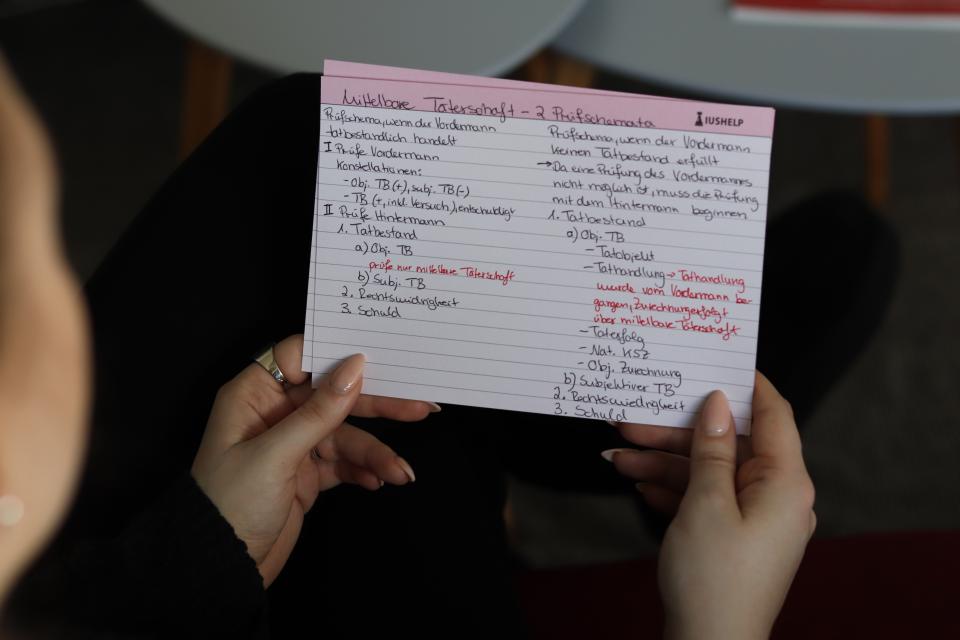 Mittelbare Täterschaft - 2 Prüfschemata
IUSHELP
Prüfschema, wenn der Vordermann
tatbestandlich handelt
I Prüfe Vordermann
Konstellationen:
- Obj. TB (+), subj. TB (-)
- TB (+, inkl. Versuch), entschuldigt
II Prüfe Hintermann
1. Tatbestand
a) Obj. TB
prüfe nur mittelbare Täterschaft
b) Subj. TB
2. Rechtswidrigkeit
3. Schuld
Prüfschema, wenn der Vordermann
keinen Tatbestand erfüllt
→ Da eine Prüfung des Vordermannes
nicht möglich ist, muss die Prüfung
mit dem Hintermann beginnen
1. Tatbestand
a) Obj. TB
- Tatobjekt
- Tathandlung → Tathandlung
wurde vom Vordermann be-
gangen, Zurechnung erfolgt
über mittelbare Täterschaft
- Taterfolg
- Nat. KSZ
- Obj. Zurechnung
b) Subjektiver TB
2. Rechtswiedrigkeit
3. Schuld